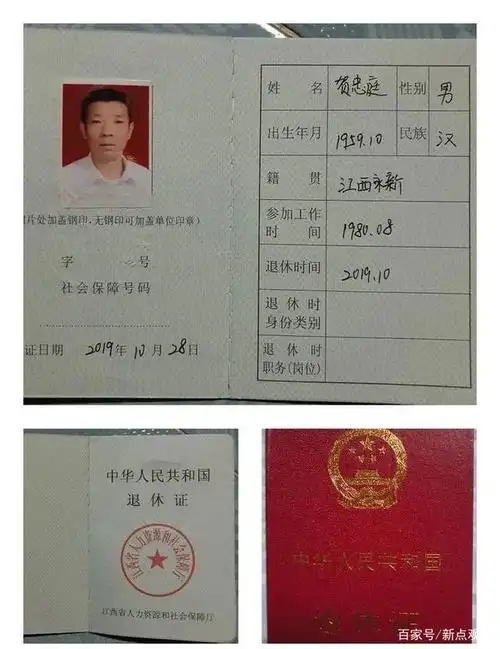 片处加盖钢印,无钢印可加盖单位印章)
字 号
社会保障号码
证日期 2019年10月28日
姓名 贺忠庭 性别 男
出生年月 1959.10 民族 汉
籍贯 江西永新
参加工作时间 1980.08
退休时间 2019.10
退休时身份类别
退休时职务(岗位)
中华人民共和国
退休证
江西省人力资源和社会保障厅
江西省人力资源和社会保障厅
中华人民共和国
退休证
百家号/新点观